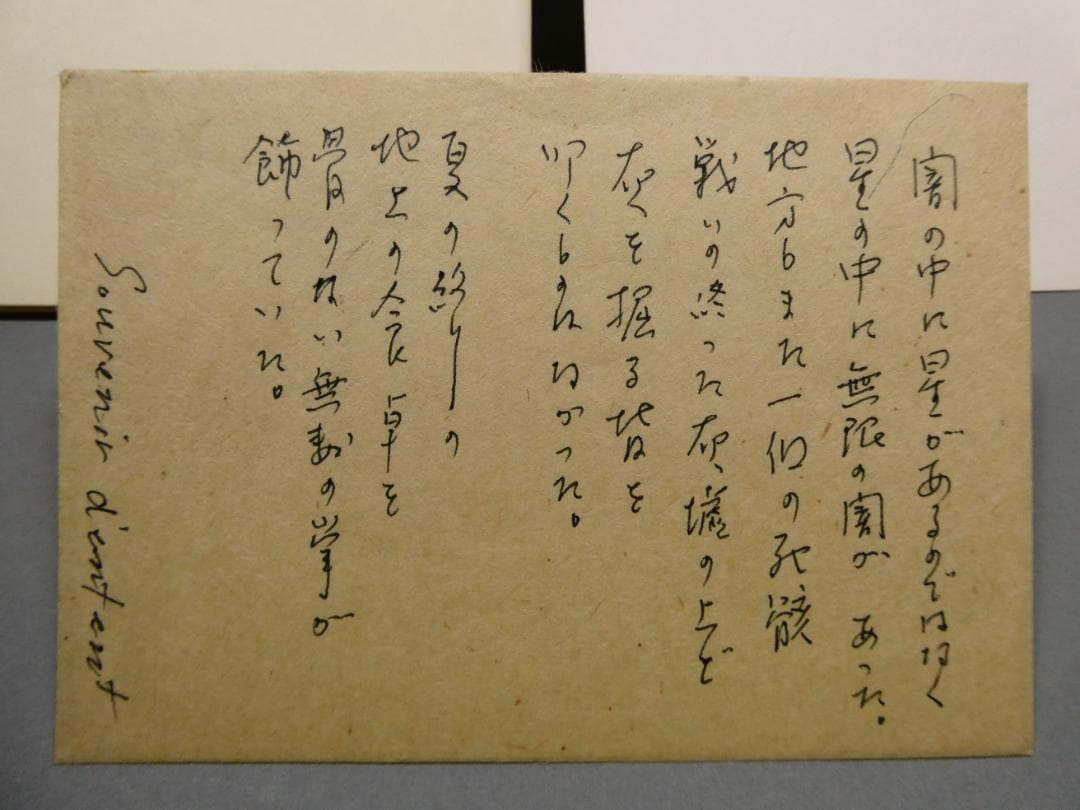 闇の中に星があるのではなく
星の中に無限の闇が あった。
地方もまた一個の死骸
戦いの終った灰墟の上で
灰を掘る背を
叩くものはなかった。
夏の終りの
地上の食卓を
骨のない無数の掌が
飾っていた。
Souvenir d'enfant